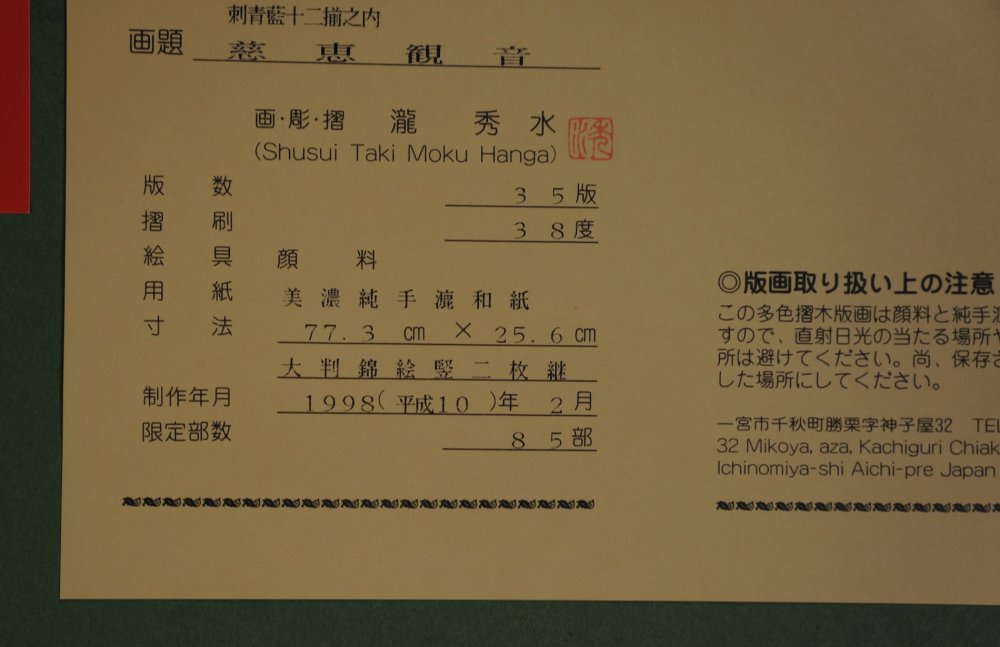 刺青藍十二揃之内
画題 慈恵観音
画・彫・摺 瀧 秀水
(Shusui Taki Moku Hanga)
版数 35版
摺刷 38度
絵具 顔料
用紙 美濃純手漉和紙
寸法 77.3 cm × 25.6 cm
大判錦絵竪二枚継
制作年月 1998(平成10)年 2月
限定部数 85部
◎版画取り扱い上の注意
この多色摺木版画は顔料と純手漉
すので、直射日光の当たる場所や
所は避けてください。尚、保存さ
した場所にしてください。
一宮市千秋町勝栗字神子屋32 TEL
32 Mikoya, aza, Kachiguri Chiak
Ichinomiya-shi Aichi-pre Japan